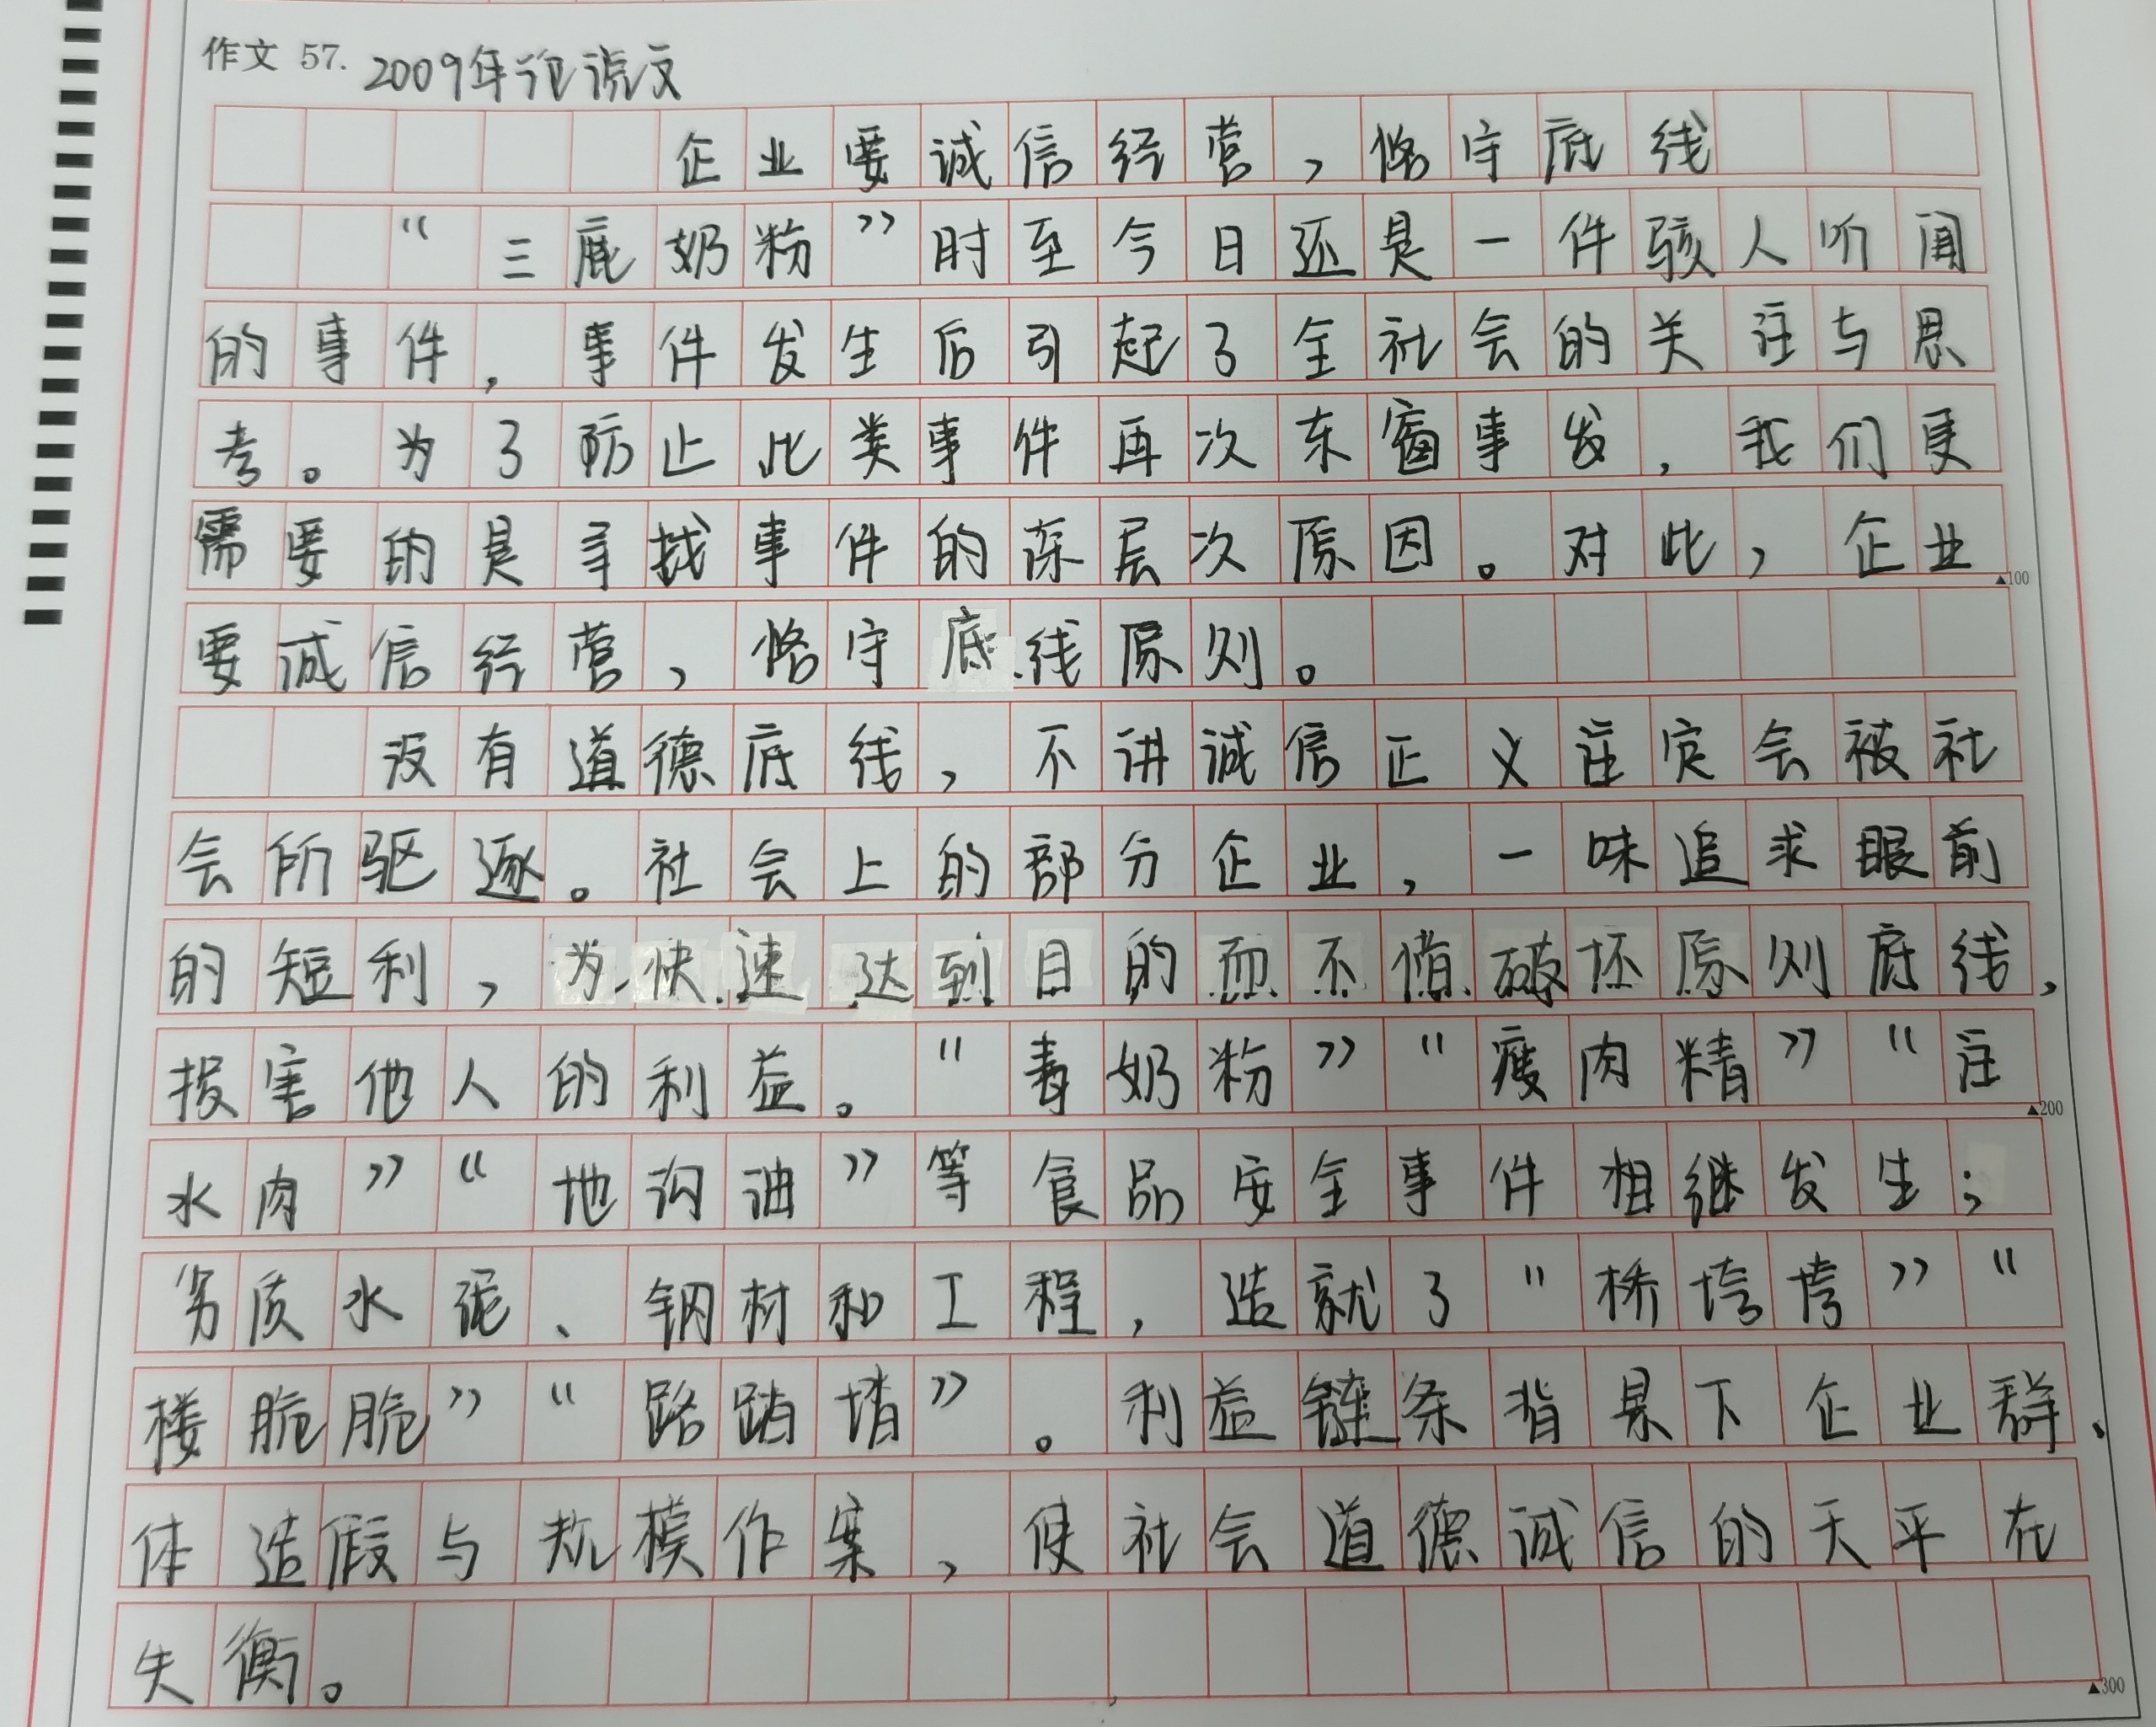 作文 57. 2009年论说文
企业要诚信经营，恪守底线
“三鹿奶粉”时至今日还是一件骇人听闻
的事件，事件发生后引起了全社会的关注与思
考。为了防止此类事件再次东窗事发，我们更
需要的是寻找事件的深层次原因。对此，企业
▲100
要诚信经营，恪守底线原则。
没有道德底线，不讲诚信正义注定会被社
会所驱逐。社会上的部分企业，一味追求眼前
的短利，为快速达到目的而不惜破坏原则底线，
损害他人的利益。“毒奶粉”“瘦肉精”“注
▲200
水肉”“地沟油”等食品安全事件相继发生；
劣质水泥、钢材和工程，造就了“桥垮垮”“
楼脆脆”“路踏墙”。利益链条背景下企业群、
体造假与规模作案，使社会道德诚信的天平在
失衡。
▲300